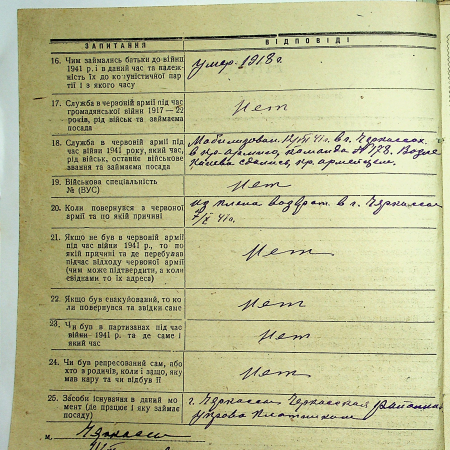 ЗАПИТАННЯ ВІДПОВІДІ
16. Чим займались батьки до війни
1941 р. і в даний час та належ-
ність їх до комуністичної пар-
тії і з якого часу
Умер. 1918 г.
17. Служба в червоній армії під час
громадянської війни 1917—22
років, рід військ та займаєма
посада
Нет
18. Служба в червоній армії під
час війни 1941 року, який час,
рід військ, останнє військове
звання та займаєма посада
Мобилизован в г. Черкассах
в кр. армию, команда № 178. Возле
Киева сдались кр. армейцем.
19. Військова спеціальність
№ (ВУС)
Нет
20. Коли повернувся з червоної
армії та по якій причині
из плена возврат. в г. Черкассы
7/X 41 г.
21. Якщо не був в червоній армії
під час війни 1941 р., то по
якій причині та де перебував
підчас відходу червоної армії
(чим може підтвердити, а коли
свідками то їх адреса)
Нет
22. Якщо був евакуйований, то ко-
ли повернувся та звідки саме
Нет
23. Чи був в партизанах під час
війни 1941 р. та де саме і
який час
Нет
24. Чи був репресований сам, або
хто з родичів, коли і защо, яку
мав кару та чи відбув її
Нет
25. Засоби існування в даний мо-
мент (де працює і яку займає
посаду)
г. Черкассы Черкасская районная
управа
м. Черкассы